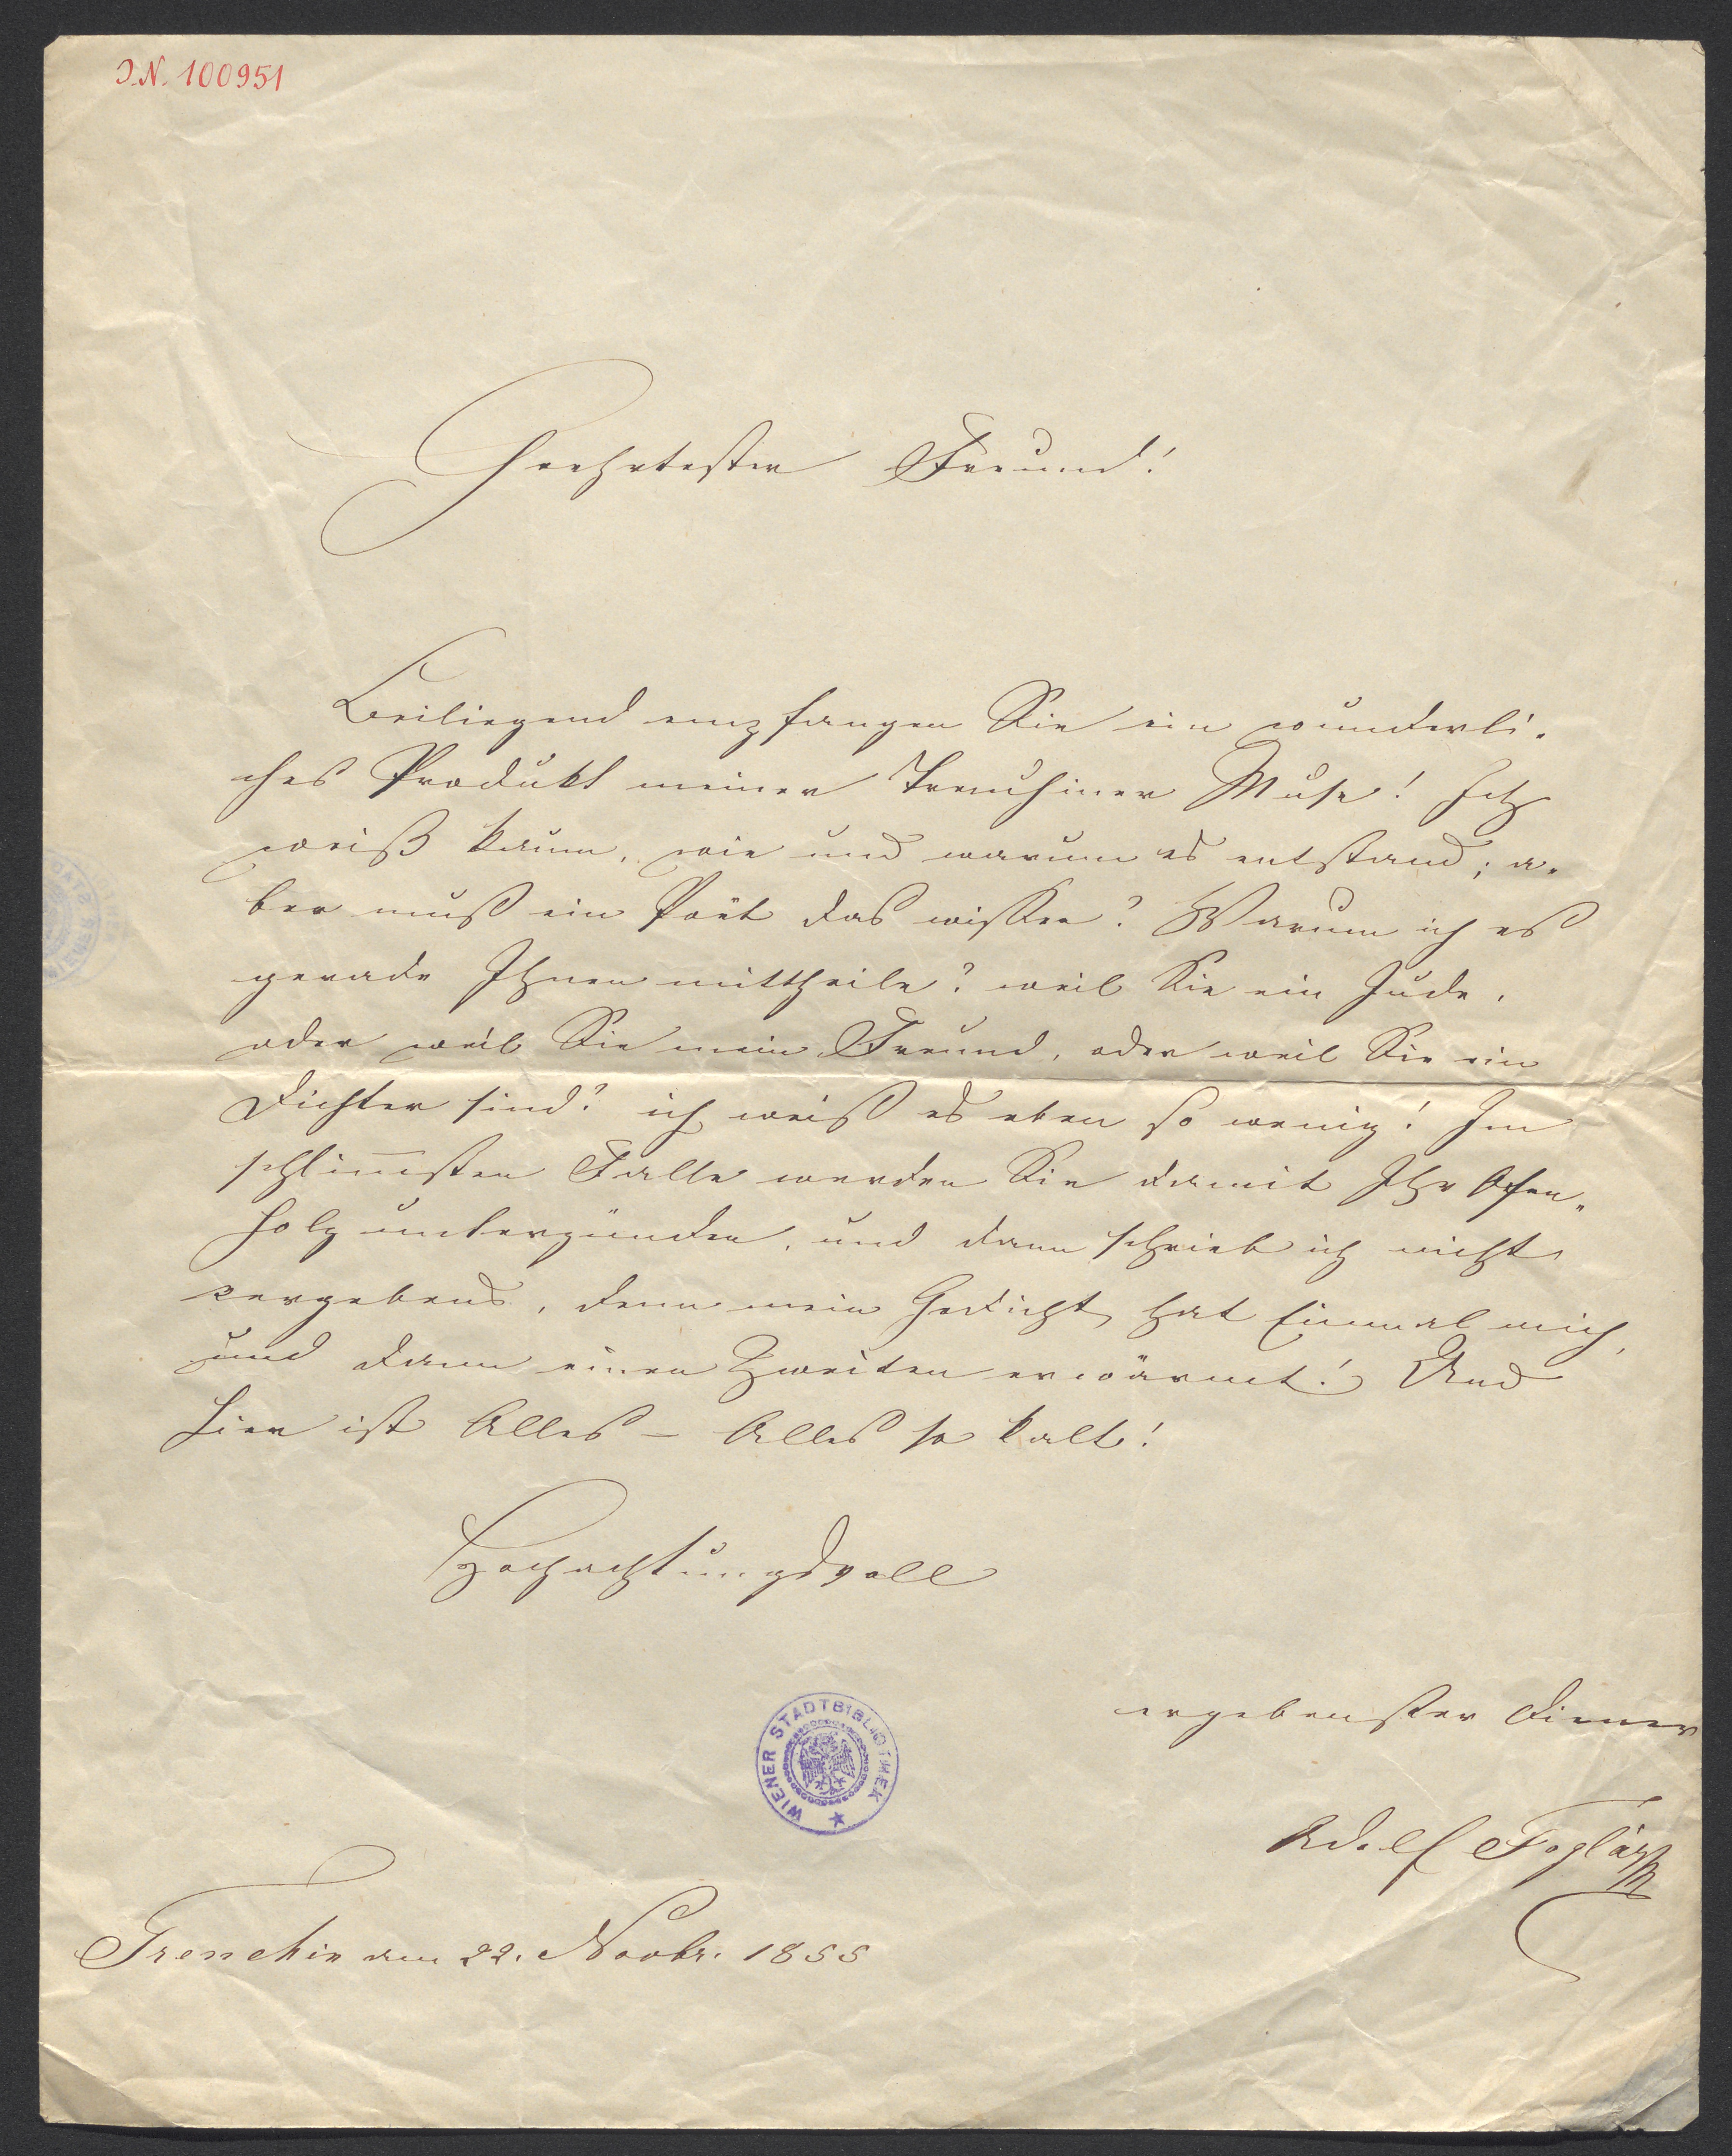 I.N. 100951
Geehrtester Freund!
Beiliegend empfangen Sie ein wunderli-
ches Produkt meiner Trenchiner Muse! Ich
weiß kaum, wie und warum es entstand; a-
ber muß ein Poët das wissen? Warum ich es
gerade Ihnen mittheile? weil Sie ein Jude,
oder weil Sie mein Freund, oder weil Sie ein
Dichter sind? ich weiß es eben so wenig! Im
schlim̅sten Falle werden Sie damit Ihr Ofen-
holz unterzünden, und dann schrieb ich nicht
vergebens, denn mein Gedicht hat Einmal mich,
und dann einen Zweiten erwärmt! Und
hier ist Alles – Alles so kalt!
Hochachtungsvoll
WIENER STADTBIBLIOTHEK
ergebenster Diener
Adolf Foglár
Trenchin am 22. Novbr. 1855